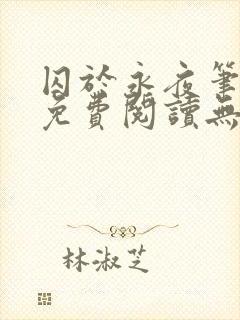 囚於永夜筆
免費閱讀無
林淑芝